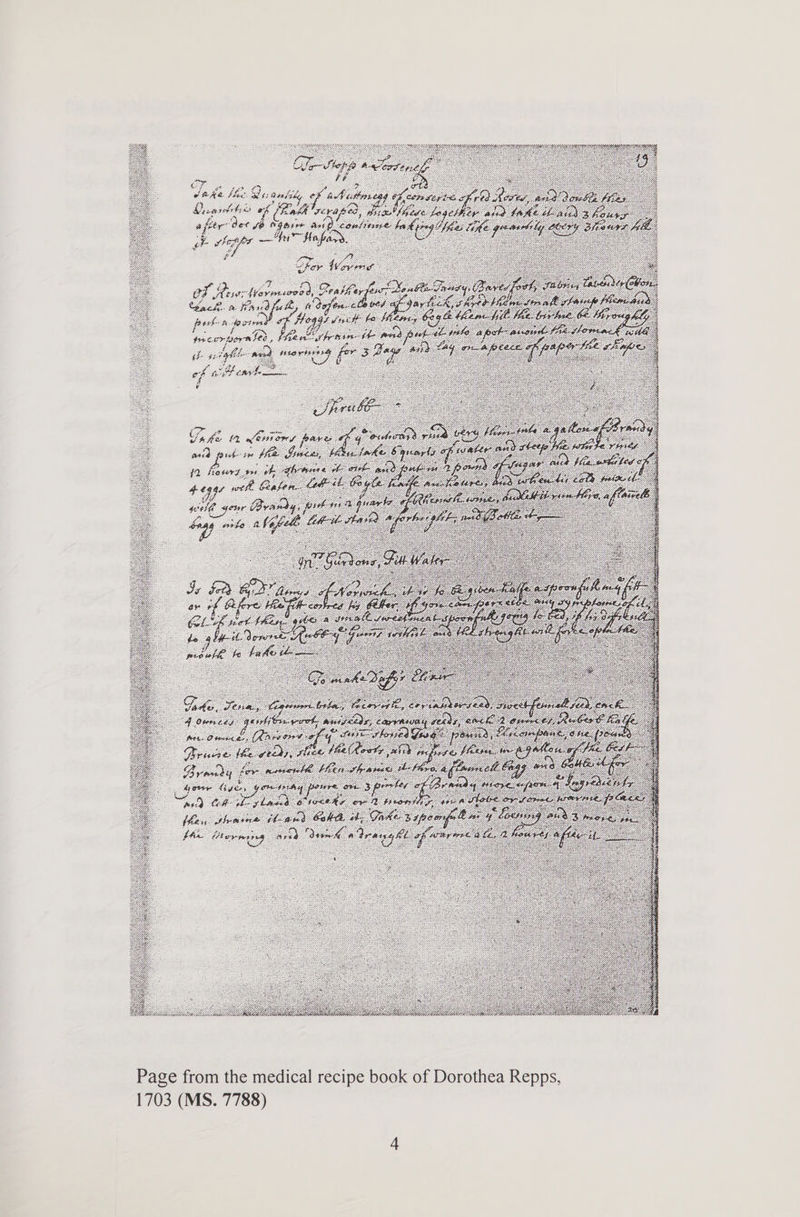 19
To Stopp a Loosenes
Take the Quantity of a Nuttmegg of conserve of red Roses, and double the
Quantitie of Chalk scraped, mix these together and take it and 3 hours
after doe so againe and continue takeing the like quantity every 3 hours till
it stopps — Mrs Habard.
For Worms
Of Rue, Wormwood, Featherfew, Double Tansy, Bares foot, Sabin, Lavender Cotton
Each a handfull, a dozen cloves of garlick, shred them small stamp them and
put a pound of Hoggs suet to them, boyle them till the virtue be throughly
incorporated, then strain it and put it into a pot anoint the stomack with
it night and morning for 3 Days and lay on a peece of paper the shape
of a heart —
Shrubb
Take 12 Lemons pare of ye outward rind very thin into a gallon of Brandy
and put in the Juice, then take 6 quarts of water and steep the whole rinds
12 hours in it, straine it out and put in 2 pound of Sugar and the whites of
4 eggs well beaten. Lett it boyle halfe an houre, and when tis cold mix it
with your Brandy, put in a quarte of Rhenish wine, and lett it run thro, a flanell
bagg into a Vessell lett it stand a fortnight, and Bottle it —
Mrs Gurdons, Fitt Water
Is sold by Dr Amys of Norwich, it is to be given halfe a spoonfull in ye fitt
or if before the fitt comes by
But if not then give a small spoonfull going to bed,
to gett it down Rubb ye Gums with it and the strength will force open the
mouth to take it —
To make Daffys Elixir
Take, Sena, Lignum vitæ, Licorish, coriander seed, sweet fennell seed, each
4 Ounces gentian root, aniseeds, carraway seeds, each 2 ounces, Rubarb halfe
an Ounce, Raisons of ye Sun stoned pound, Elecampane, one pound
Bruise the seeds, slice the Roots, and infuse them in a gallon of the best
Brandy for a month then straine it thro, a flannell bagg and bottle it for
your use, you may poure on 3 pints of Brandy more upon ye Ingredients
and lett it stand 6 weeks or 2 months, in a stove or some warme place
then straine it and bottle it, Take 3 spoonfull in ye Evening and 3 more in
the Morning and drink a draught of warme ale, 2 houres after it
20
Page from the medical recipe book of Dorothea Repps,
1703 (MS. 7788)
4